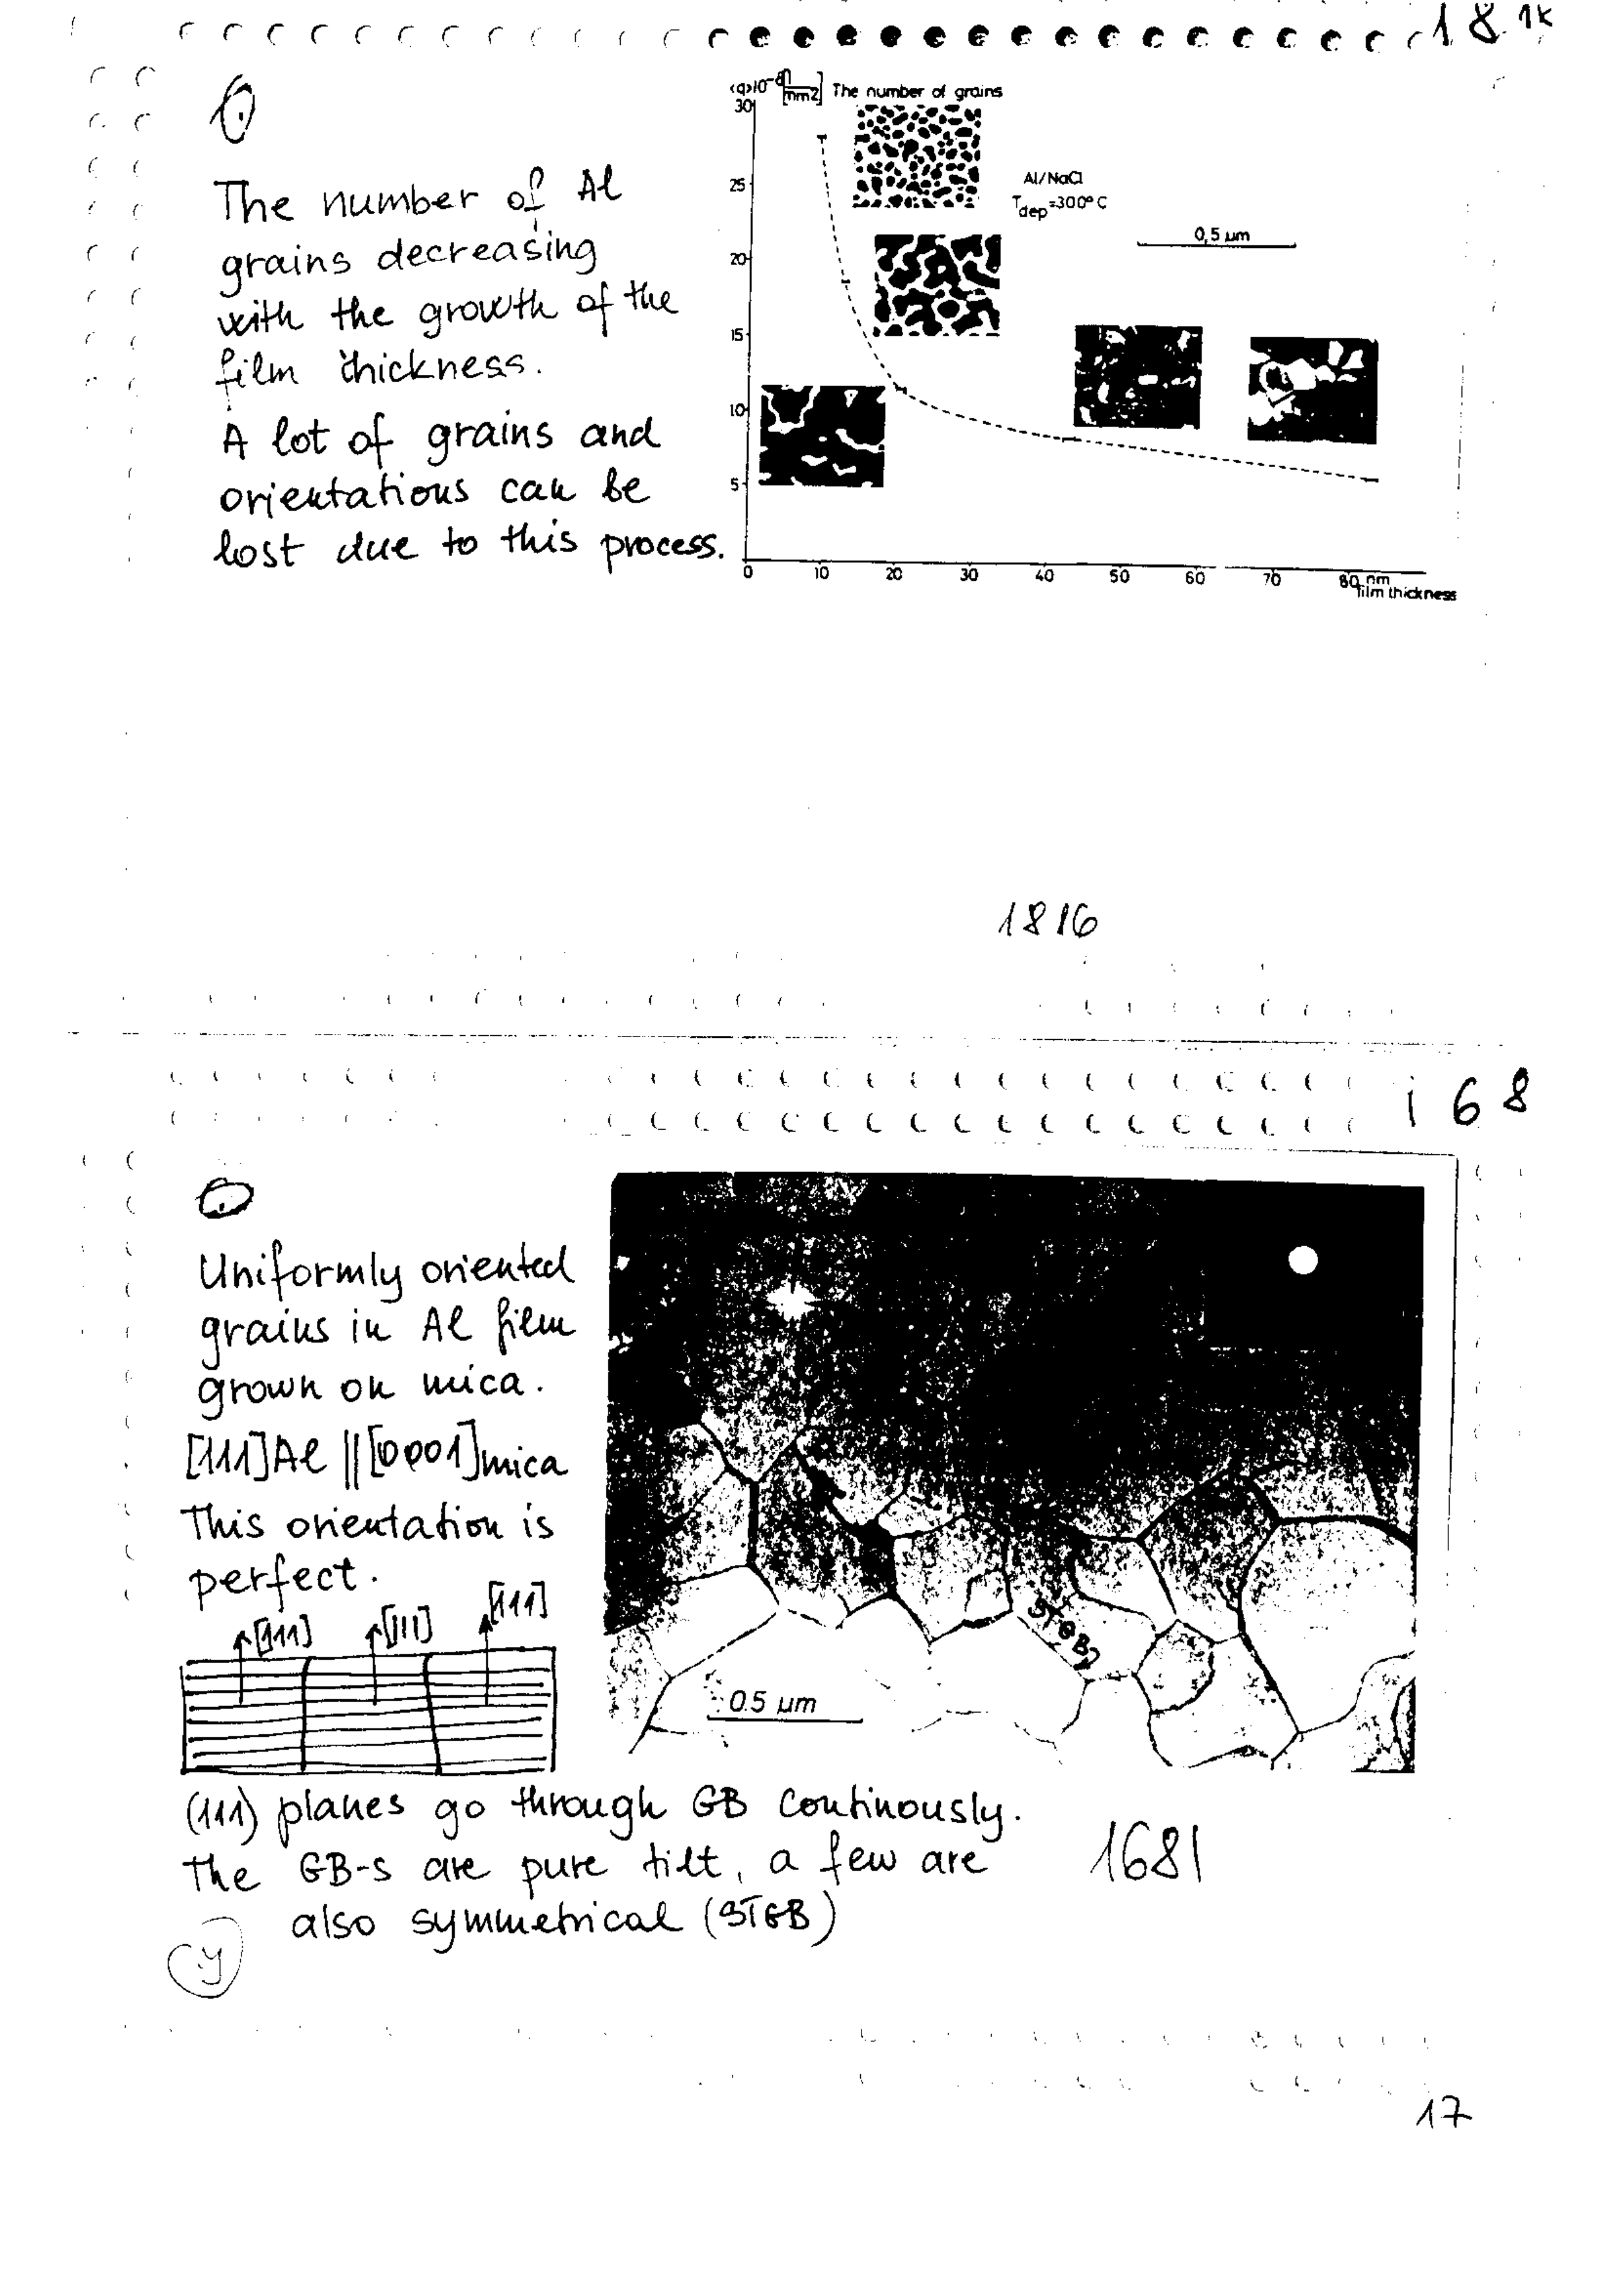 18 1K
The number of Al
grains decreasing
with the growth of the
film thickness.
A lot of grains and
orientations can be
lost due to this process.
The number of grains
30
25
20
15
10
5
Al/NaCl
Tdep=300°C
0,5 µm
0 10 20 30 40 50 60 70 80 nm
film thickness
1816
168
Uniformly oriented
grains in Al film
grown on mica.
[111]Al || [0001]mica
This orientation is
perfect.
[111] [111] [111]
STGB
0.5 µm
(111) planes go through GB continously.
The GB-s are pure tilt, a few are
also symmetrical (STGB)
1681
17